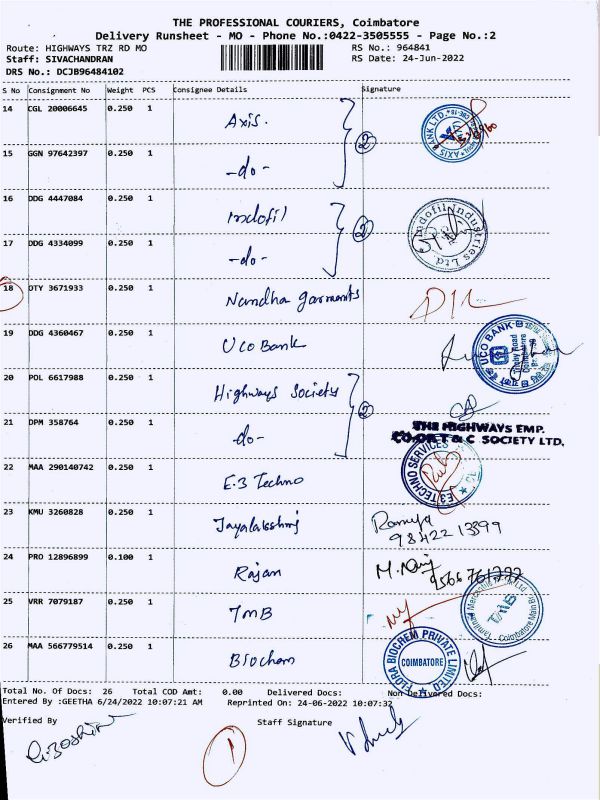 THE PROFESSIONAL COURIERS, Coimbatore
Delivery Runsheet - MO - Phone No.:0422-3505555 - Page No.:2
Route: HIGHWAYS TRZ RD MO RS No.: 964841
Staff: SIVACHANDRAN RS Date: 24-Jun-2022
DRS No.: DCJB96484102
S No Consignment No Weight PCS Consignee Details Signature
14 CGL 20006645 0.250 1 Axis. AXIS BANK LTD.
2
15 GGN 97642397 0.250 1 -do-
16 DDG 4447084 0.250 1 Indofil Indofil Industries Ltd.
2
17 DDG 4334099 0.250 1 -do-
18 OTY 3671933 0.250 1 Nandha garments D/L
19 DDG 4360467 0.250 1 UCO Bank UCO BANK Trichy Road Coimbatore
20 POL 6617988 0.250 1 Highways Society
2
21 DPM 358764 0.250 1 -do- THE HIGHWAYS EMP.
CO-OP. T & C SOCIETY LTD.
22 MAA 290140742 0.250 1 E.3 Techno E3 TECHNO SERVICES
23 KMU 3260828 0.250 1 Jayalakshmi Ramya
98422 13399
24 PRO 12896899 0.100 1 Rajan
25 VRR 7079187 0.250 1 TMB TMB Coimbatore Main Br.
26 MAA 566779514 0.250 1 Biochem FLORA BIOCREM PRIVATE LIMITED COIMBATORE
Total No. Of Docs: 26 Total COD Amt: 0.00 Delivered Docs: Non Delivered Docs:
Entered By :GEETHA 6/24/2022 10:07:21 AM Reprinted On: 24-06-2022 10:07:32
Verified By Staff Signature
1